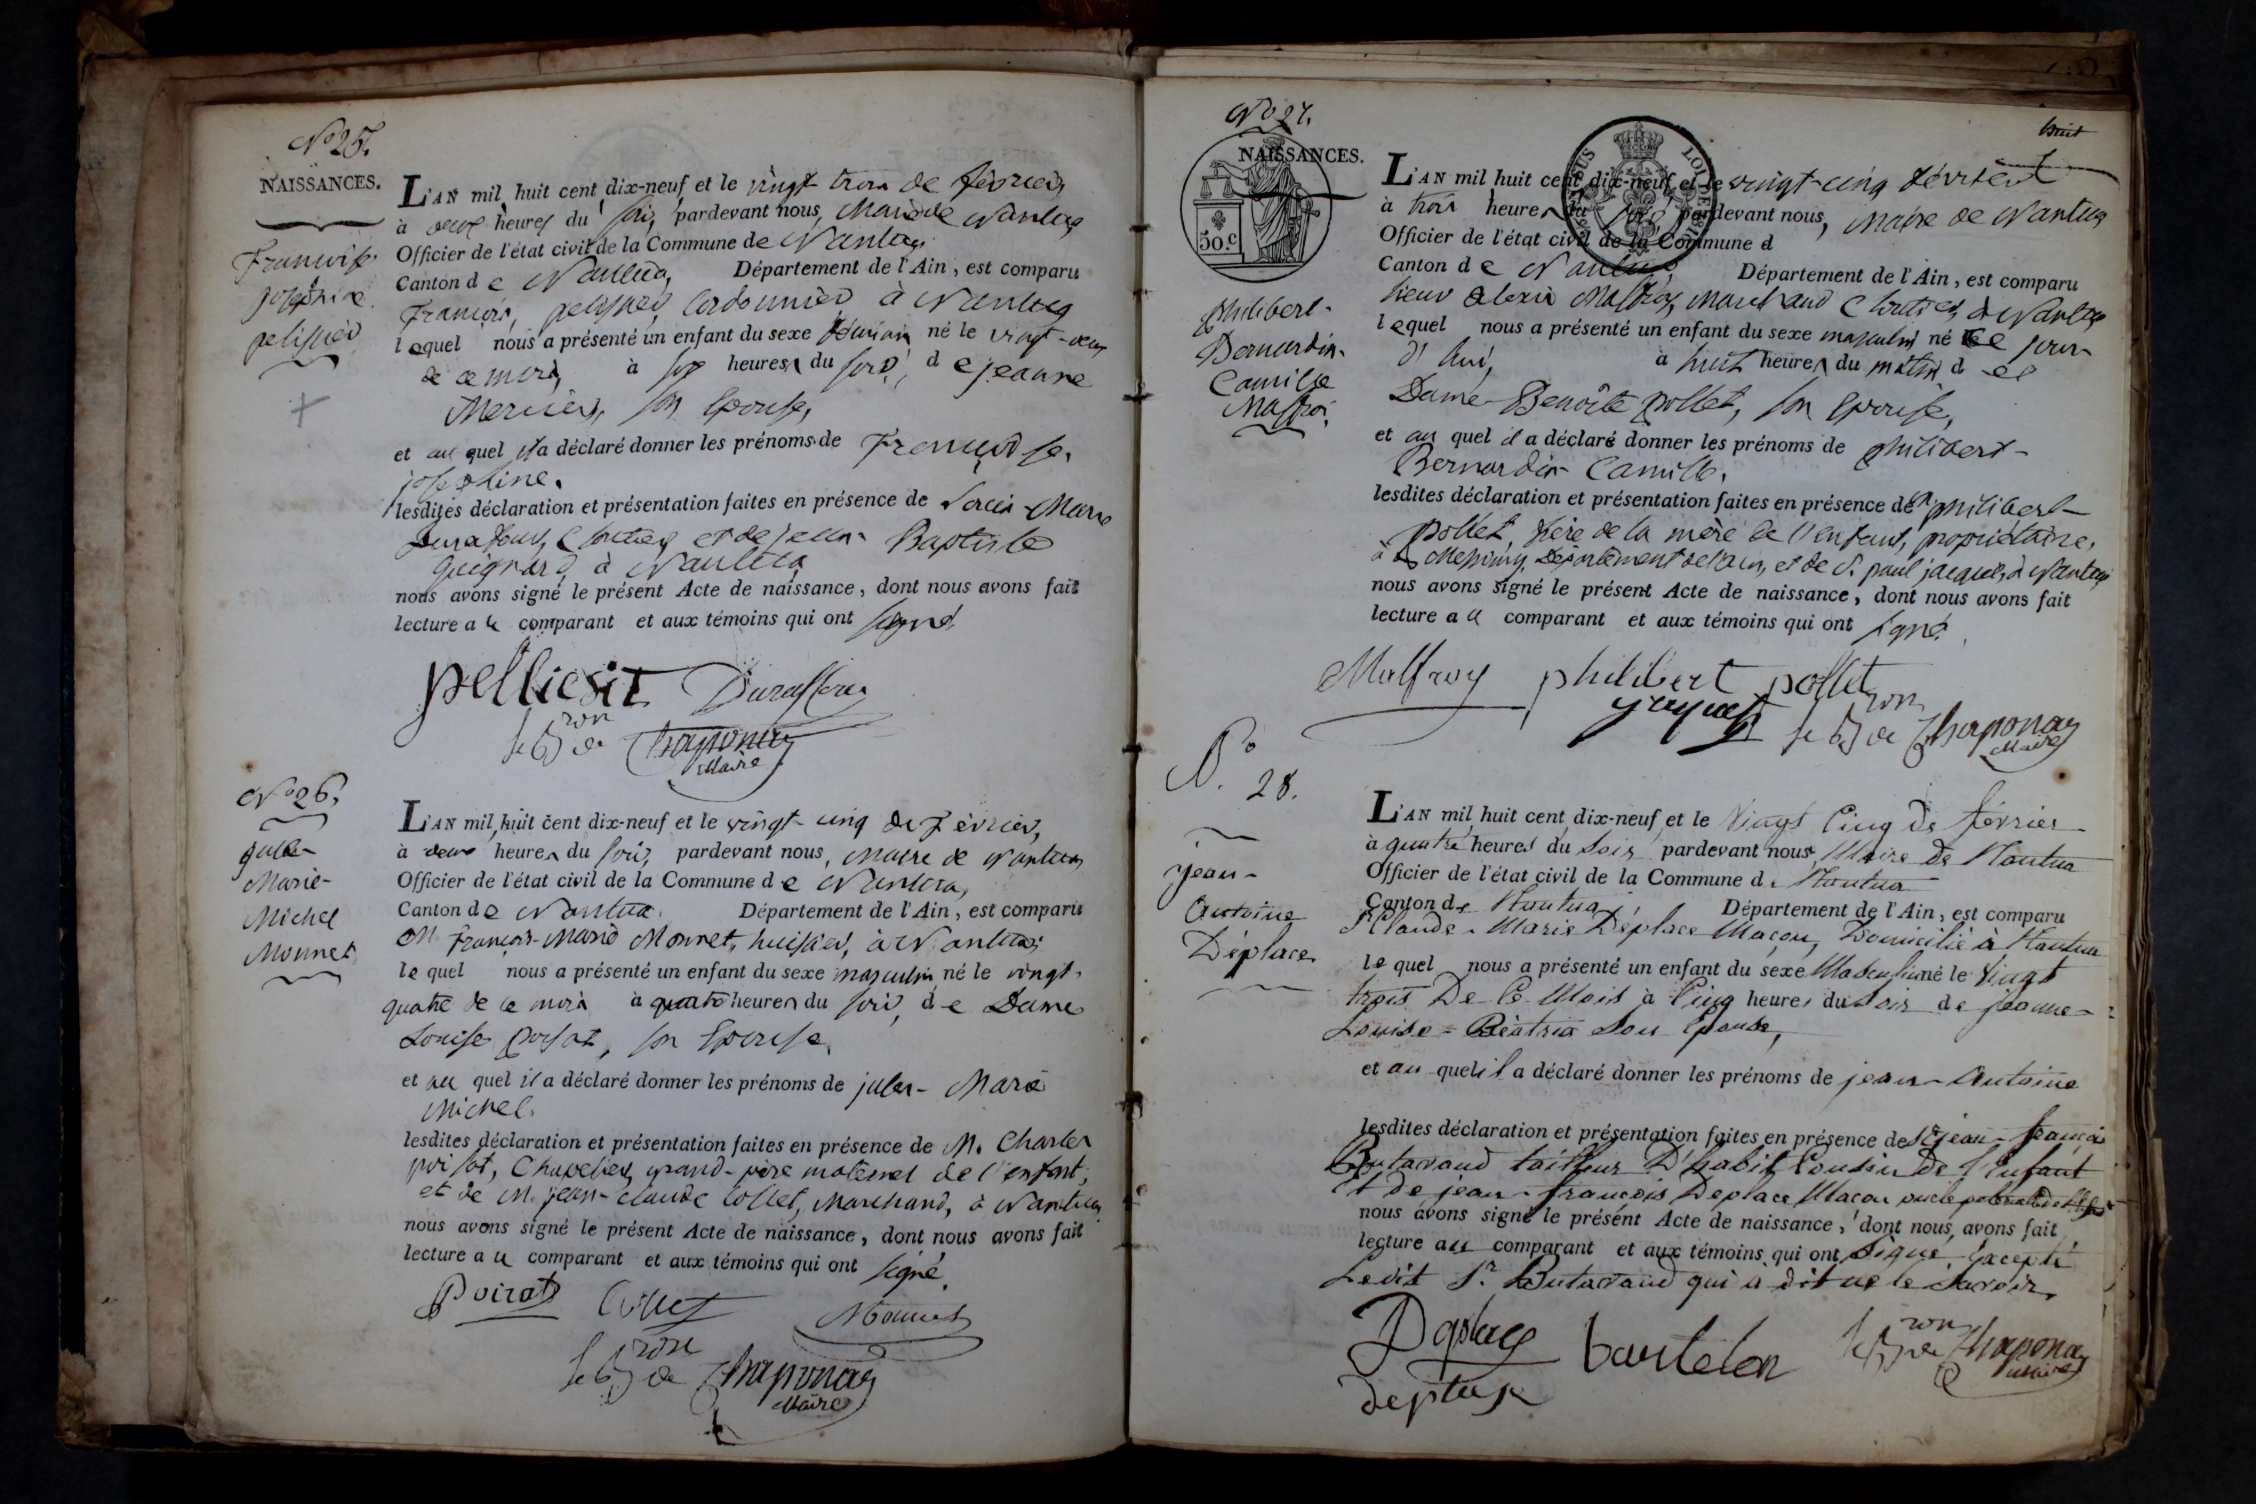 N.º 25.
NAISSANCES.
Françoise
joséphine
pelissier
L'AN mil huit cent dix-neuf et le vingt trois de février
à deux heures du soir, pardevant nous, Maire de Nantua
Officier de l'état civil de la Commune de Nantua
Canton de Nantua, Département de l'Ain, est comparu
François, pelissier, Cordonnier à Nantua
lequel nous a présenté un enfant du sexe féminin né le vingt-deux
de ce mois, à six heures du soir, de jeanne
Mercier, son Epouse,
et au quel il a déclaré donner les prénoms de Françoise
joséphine.
lesdites déclaration et présentation faites en présence de Louis-Marie
Duraffour, Cloutier et de jean Baptiste
Guignard, à Nantua
nous avons signé le présent Acte de naissance, dont nous avons fait
lecture au comparant et aux témoins qui ont signé.
pelliesit Duraffour
le Bron de Chaponay
Maire
N.º 26.
jules
Marie-
Michel
Monnet
L'AN mil huit cent dix-neuf et le vingt-cinq de Février,
à deux heures du soir, pardevant nous, Maire de Nantua
Officier de l'état civil de la Commune de Nantua,
Canton de Nantua. Département de l'Ain, est comparu
M. François-Marie Monnet, huissier, à Nantua;
lequel nous a présenté un enfant du sexe masculin né le vingt-
quatre de ce mois à quatre heures du soir, de Dame
Louise Poisat, son Epouse,
et au quel il a déclaré donner les prénoms de jules-Marie
Michel.
lesdites déclaration et présentation faites en présence de M. Charles
poisat, Chapelier, grand-père maternel de l'enfant,
et de M. jean-Claude Collet, Marchand, à Nantua
nous avons signé le présent Acte de naissance, dont nous avons fait
lecture au comparant et aux témoins qui ont signé.
Poizat Collet Monnet
le Bron de Chaponay
Maire
N.º 27.
huit
NAISSANCES.
50.c
LOI DE 1816
philibert-
Bernardin-
Camille
Malfroi.
L'AN mil huit cent dix-neuf et le vingt-cinq février
à trois heures du soir, pardevant nous, Maire de Nantua
Officier de l'état civil de la Commune d
Canton de Nantua Département de l'Ain, est comparu
sieur Alexis Malfroy, Marchand Cloutier, à Nantua
lequel nous a présenté un enfant du sexe masculin né ce jour
d'hui, à huit heures du matin de
Dame Benoîte pollet, son Epouse,
et au quel il a déclaré donner les prénoms de philibert-
Bernardin Camille.
lesdites déclaration et présentation faites en présence de S.r philibert
pollet, frère de la mère de l'enfant, propriétaire,
à Messimy, Département de l'ain, et de S. paul jacquet, à Nantua
nous avons signé le présent Acte de naissance, dont nous avons fait
lecture au comparant et aux témoins qui ont signé.
Malfroy philibert pollet
jacquet
le Bron de Chaponay
Maire
N.º 28.
jean-
Antoine
Déplace
L'AN mil huit cent dix-neuf et le Vingt Cinq de février
à quatre heures du Soir pardevant nous, Maire de Nantua
Officier de l'état civil de la Commune de Nantua
Canton de Nantua, Département de l'Ain, est comparu
S.r Claude-Marie Déplace Maçon, Domicilié à Nantua
lequel nous a présenté un enfant du sexe Masculin né le Vingt
trois De Ce Mois à Cinq heures du Soir de jeanne-
Louise-Béatrix Son Epouse,
et au quel il a déclaré donner les prénoms de jean-Antoine
lesdites déclaration et présentation faites en présence de S.r jean-françois
Butavand tailleur D'habit Cousin de l'enfant
Et de jean-françois Déplace Maçon oncle paternel de l'enfant
nous avons signé le présent Acte de naissance, dont nous avons fait
lecture au comparant et aux témoins qui ont Signé Excepté
Ledit S.r Butavand qui a dit ne le Savoir.
Deplace
le Bron de Chaponay
Maire
deplace